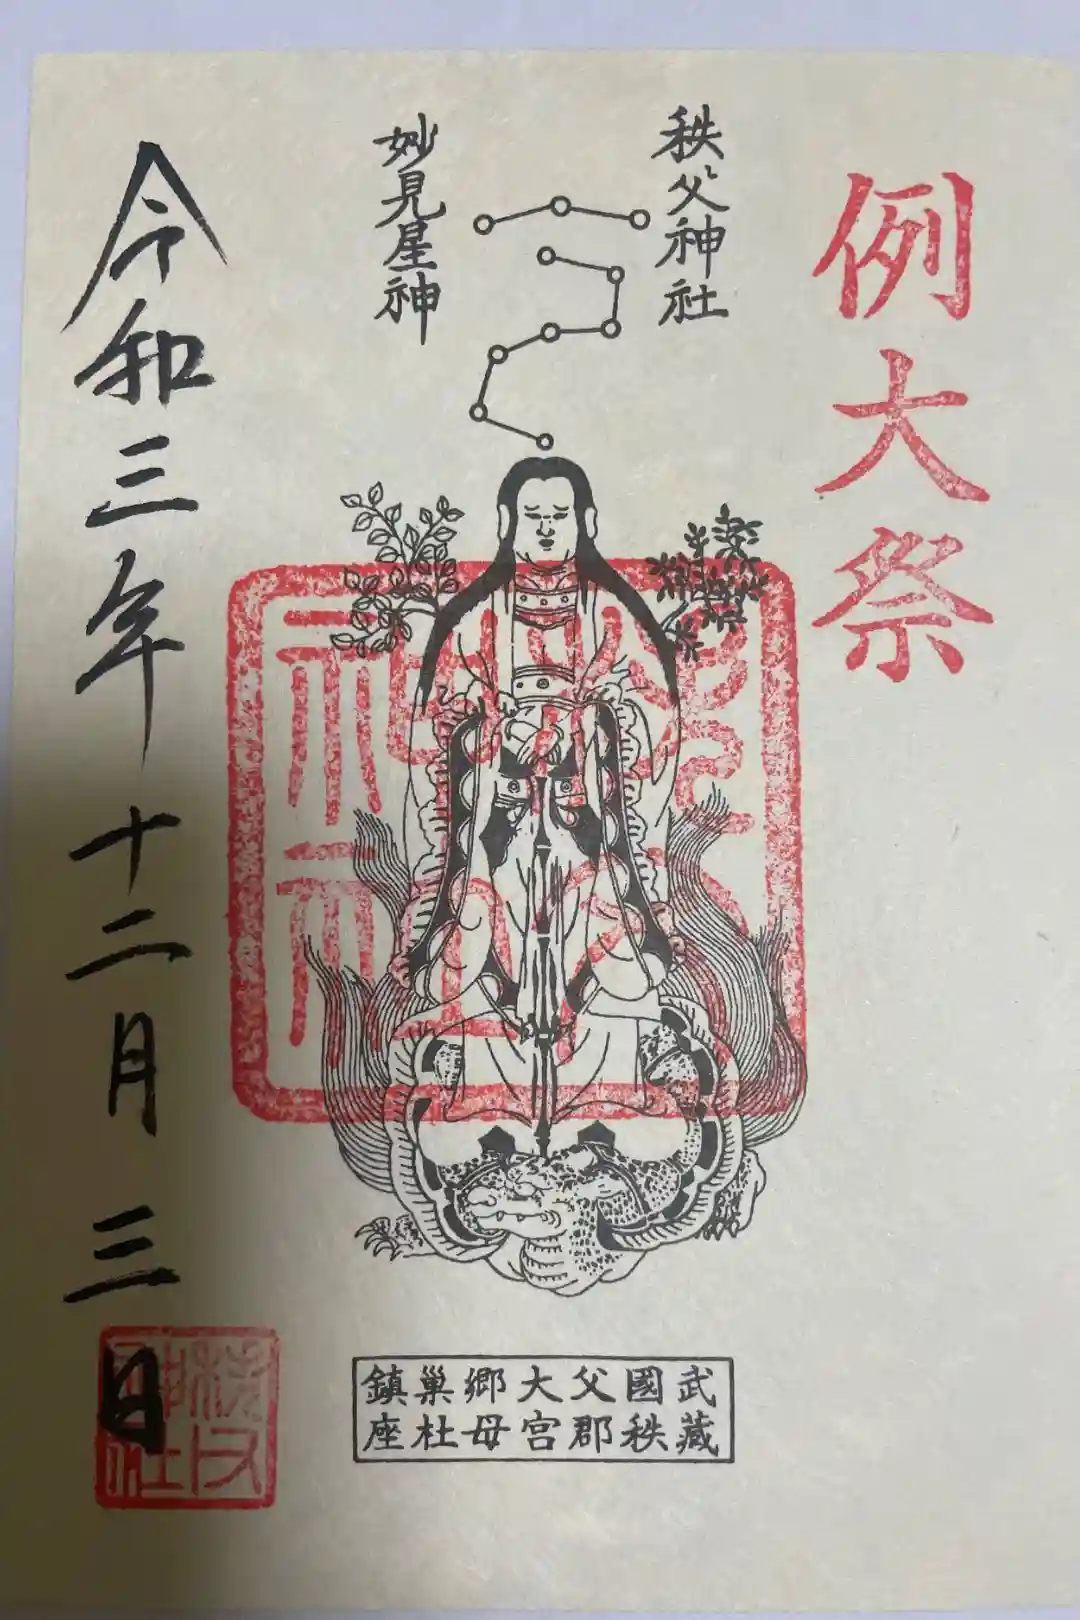 例大祭
秩父神社
妙見星神
武藏國秩父郡大宮郷母巣杜鎮座
令和三年十二月三日